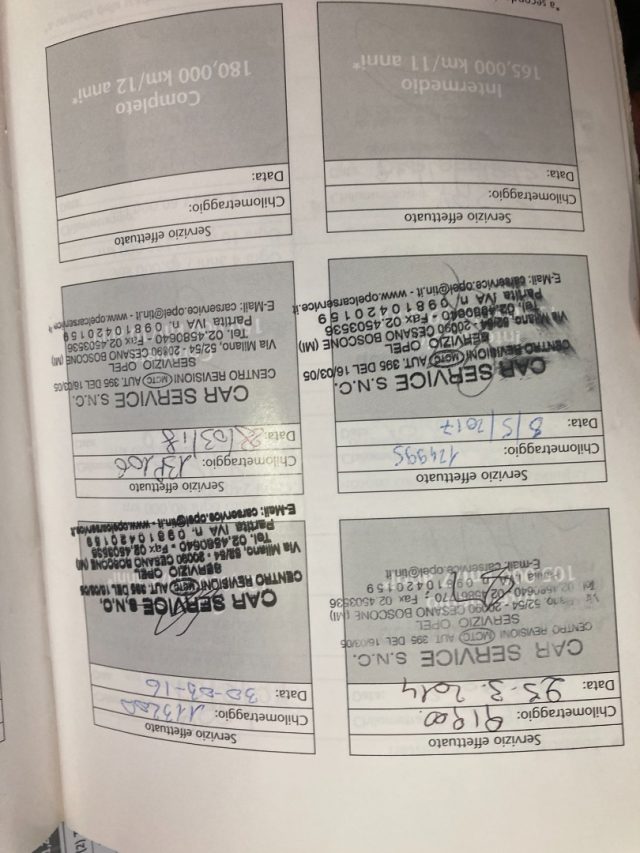 Servizio effettuato
Chilometraggio: 91900
Data: 25-3-2014
CAR SERVICE S.N.C.
CENTRO REVISIONI MCTC AUT. 395 DEL 16/03/05
SERVIZIO OPEL
52/54 - 20090 CESANO BOSCONE (MI)
Fax 02.4503536
E-mail: carservice.opel@tin.it
Servizio effettuato
Chilometraggio: 113200
Data: 30-03-16
CAR SERVICE S.N.C.
CENTRO REVISIONI MCTC AUT. 395 DEL 16/03/05
SERVIZIO OPEL
Via Milano, 52/54 - 20090 CESANO BOSCONE (MI)
Tel. 02.4580640 - Fax 02.4503536
Partita IVA n. 09810420159
E-Mail: carservice.opel@tin.it - www.opelcarservice.it
Servizio effettuato
Chilometraggio: 124995
Data: 8/5/2017
CAR SERVICE S.N.C.
CENTRO REVISIONI MCTC AUT. 395 DEL 16/03/05
SERVIZIO OPEL
Via Milano, 52/54 - 20090 CESANO BOSCONE (MI)
Tel. 02.4580640 - Fax 02.4503536
Partita IVA n. 09810420159
E-Mail: carservice.opel@tin.it - www.opelcarservice.it
Servizio effettuato
Chilometraggio:
Data: 28/03/18
CAR SERVICE S.N.C.
CENTRO REVISIONI MCTC AUT. 395 DEL 16/03/05
SERVIZIO OPEL
Via Milano, 52/54 - 20090 CESANO BOSCONE (MI)
Tel. 02.4580640 - Fax 02.4503536
Partita IVA n. 09810420159
E-Mail: carservice.opel@tin.it - www.opelcarservice.it
Servizio effettuato
Chilometraggio:
Data:
Intermedio
165,000 km/11 anni*
Servizio effettuato
Chilometraggio:
Data:
Completo
180,000 km/12 anni*